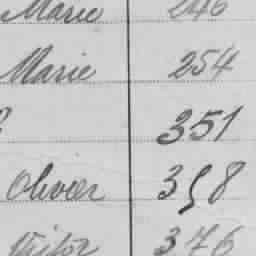 Marie 246
Marie 254
351
Olivier 358
Victor 376